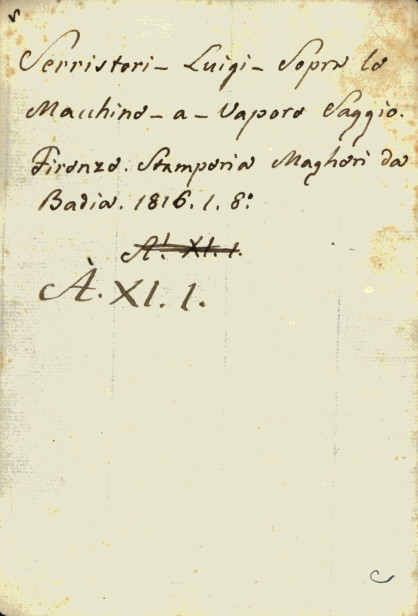 Serristori - Luigi - Sopra le
Macchine - a - Vapore Saggio.
Firenze. Stamperia Magheri da
Badia. 1816. 1. 8.º
A. XI. 1.
À. XI. 1.